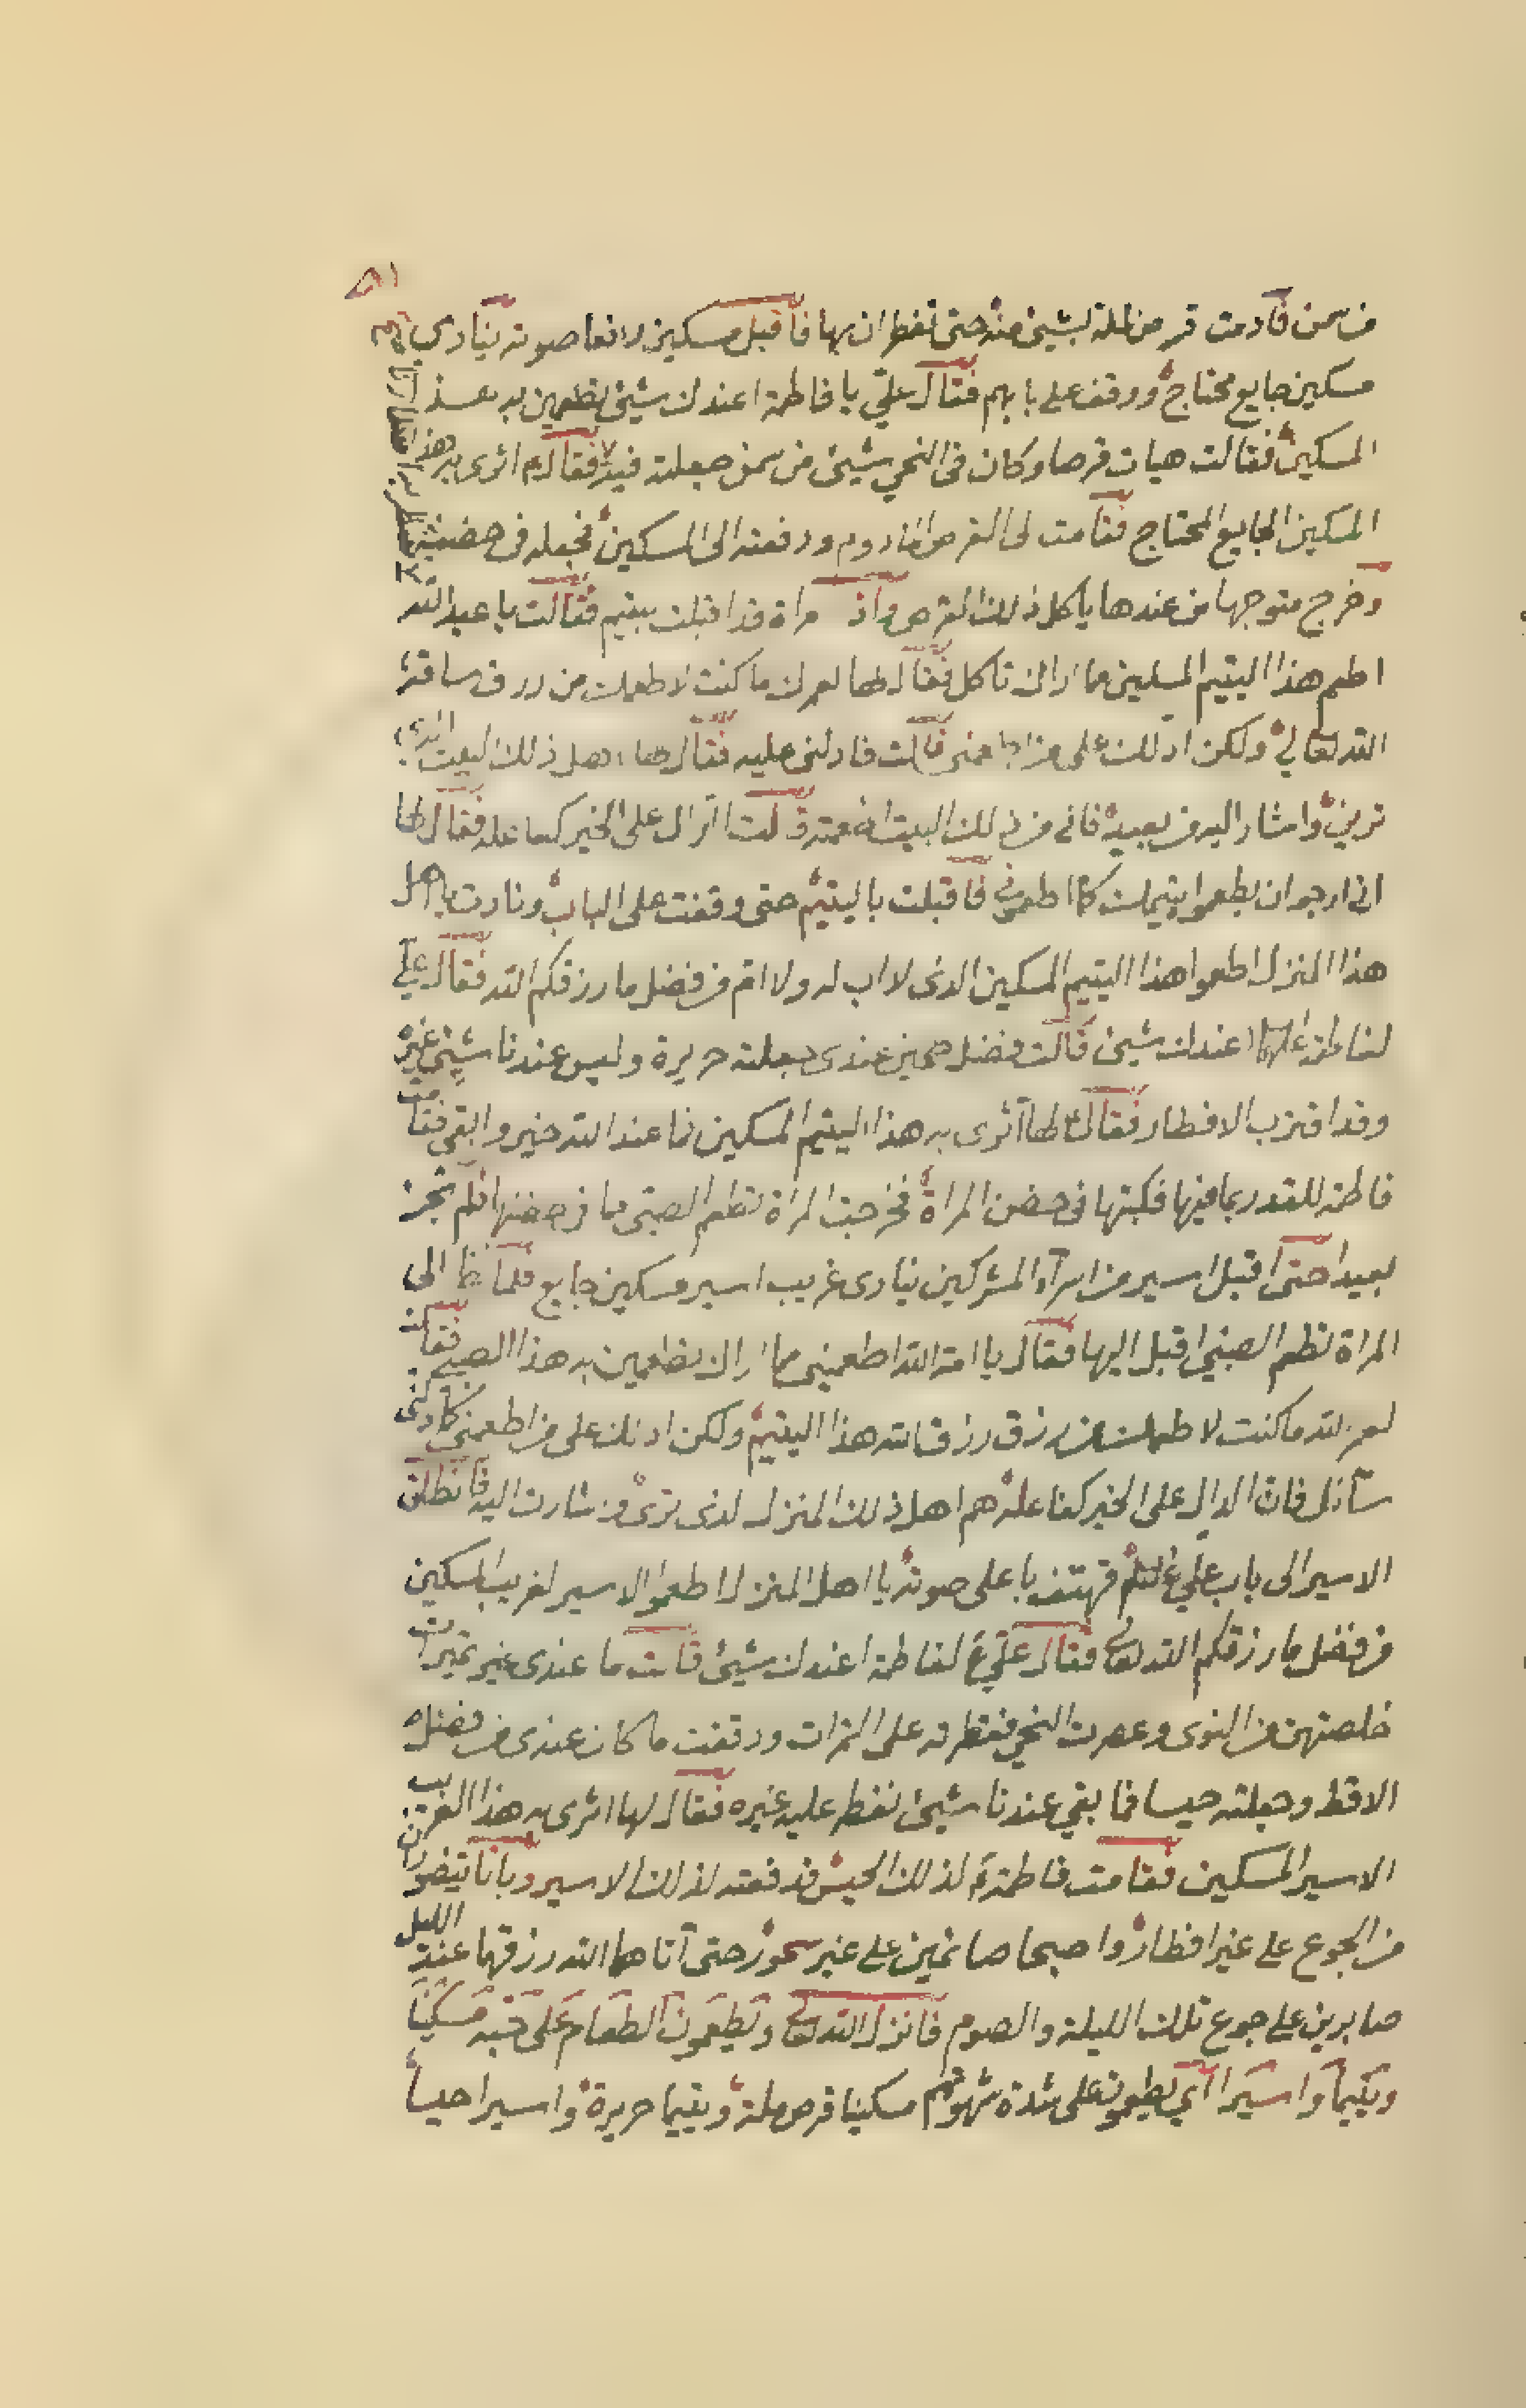 من سمن فادمت قرص الملة بشيئ منه حتى تفطران بها فأقبل مسكين رافعا صوته ينادى
مسكين جايع محتاج ووقف على بابهم فقال علي يا فاطمة اعندك شيئ تطعمين به هذا
المسكين فقالت هيات قرصا وكان فى النحي شيئ من سمن جعلته فيه فقال اثرى به هذا
المسكين الجايع المحتاج فقامت الى القرص المادوم ودفعته الى المسكين فجعله فى حضنه
وخرج متوجها من عندها ياكل ذلك القرص واذا مراة قد اقبلت بيتيم فقالت يا عبد الله
اطعم هذا اليتيم المسكين مما اراك تاكل فقال لها لعمرك ما كنت لاطعمك من رزق ساقه
الله تعالى لي ولكن ادلك على من اطعمنى قالت فادلنى عليه فقال لها اهل ذلك البيت الذى
ترين واشار اليه من بعيد فانى من ذلك البيت اطعمته قالت الدال على الخير كفاعله فقال لها
انى ارجو ان يطعموا يتيمك كما اطعمونى فاقبلت باليتيم حتى وقفت على الباب ونادت يا اهل
هذا المنزل اطعموا هذا اليتيم المسكين الذى لا اب له ولا ام من فضل ما رزقكم الله فقال علي
لفاطمة اعندك شيئ قالت فضل طحين عندى جعلته حريرة وليس عندنا شيئ غيره
وقد اقترب الافطار فقال لها آثرى به هذا اليتيم المسكين فما عند الله خير وابقى فقامت
فاطمة للقدر بما فيها فكبتها فى حضن المراة فخرجت المراة تطعم الصبى مما فى حضنها فلم تجز
بعيدا حتى اقبل اسير من اسرآء المشركين ينادى غريب اسير مسكين جايع فلما نظر الى
المراة تطعم الصبي اقبل اليها فقال يا امة الله اطعمينى مما اراك تطعمين به هذا الصبي فقالت
لعمر الله ما كنت لاطعمك من رزق رزق الله هذا اليتيم ولكن ادلك على من اطعمنى كما دلنى
سائل فان الدال على الخير كفاعله هم اهل ذلك المنزل الذى ترى واشارت اليه فانطلق
الاسير الى باب علي فهتف باعلى صوته يا اهل المنزل اطعموا الاسير الغريب المسكين
من فضل ما رزقكم الله تعالى فقال علي لفاطمة اعندك شيئ قالت ما عندى غير تميرات
خلصتهن من النوى وعصرت النحي فقطر فه على التمرات ودققت ما كان عندى من فضل
الاقط وجعلته حيسا فما بقي عندنا شيئ نفطر عليه غيره فقال لها اثرى به هذا الغريب
الاسير المسكين فقامت فاطمة لذلك الحيس فدفعته لذلك الاسير وباتا يتضوران
من الجوع على غير افطار واصبحا صائمين على غير سحور حتى آتاهما الله رزقهما عند الليل
صابرين على جوع تلك الليلة والصوم فانزل الله تعالى ويطعمون الطعام على حبه مسكينا
ويتيما واسيرا اي يطعمونه على شدة شهوتهم مسكينا قرص ملة ويتيما حريرة واسيرا حيسا